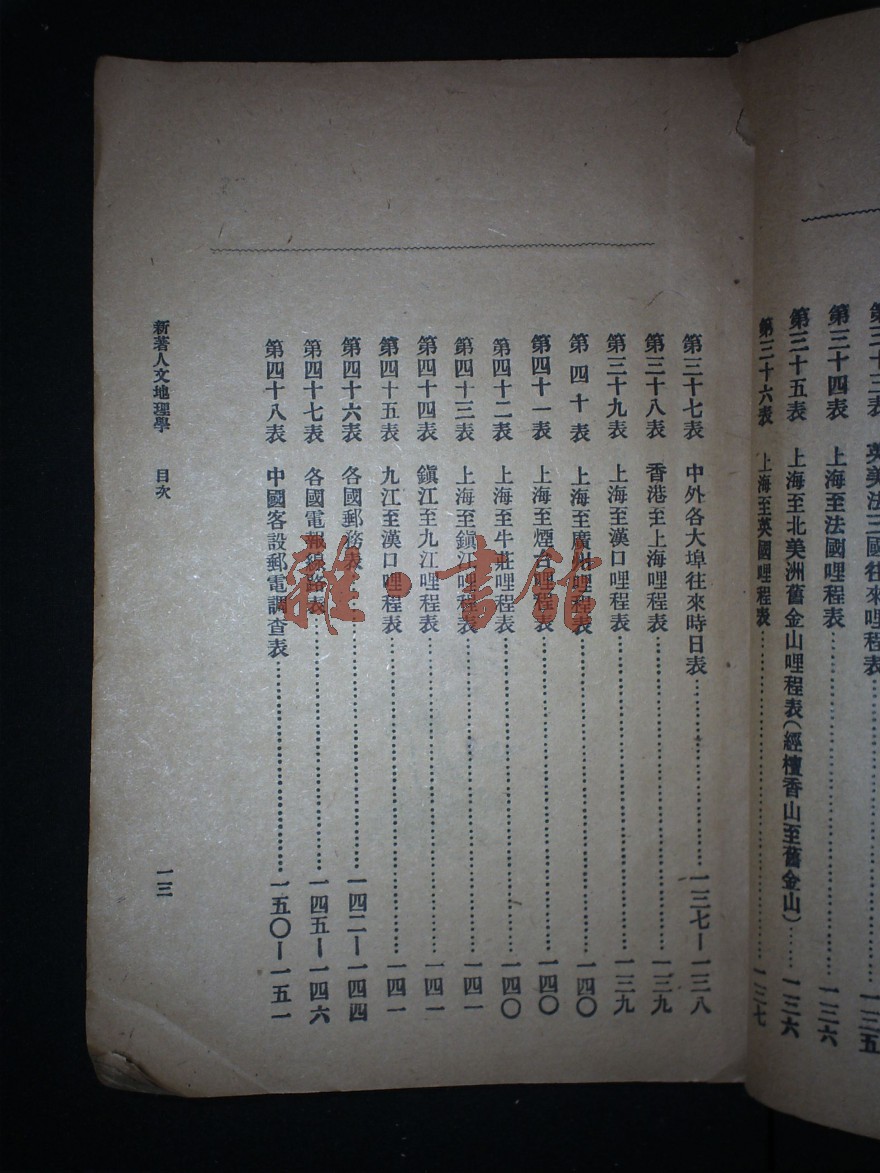 第三十三表 英美法三國往來哩程表……一三五
第三十四表 上海至法國哩程表……一三六
第三十五表 上海至北美洲舊金山哩程表(經檀香山至舊金山)……一三六
第三十六表 上海至英國哩程表……一三七
第三十七表 中外各大埠往來時日表……一三七—一三八
第三十八表 香港至上海哩程表……一三九
第三十九表 上海至漢口哩程表……一三九
第四十表 上海至廣州哩程表……一四〇
第四十一表 上海至煙台哩程表……一四〇
第四十二表 上海至牛莊哩程表……一四〇
第四十三表 上海至鎭江哩程表……一四一
第四十四表 鎭江至九江哩程表……一四一
第四十五表 九江至漢口哩程表……一四一
第四十六表 各國郵務表……一四二—一四四
第四十七表 各國電報線路表……一四五—一四六
第四十八表 中國客設郵電調查表……一五〇—一五一
新著人文地理學 目次 一三
雜·書館